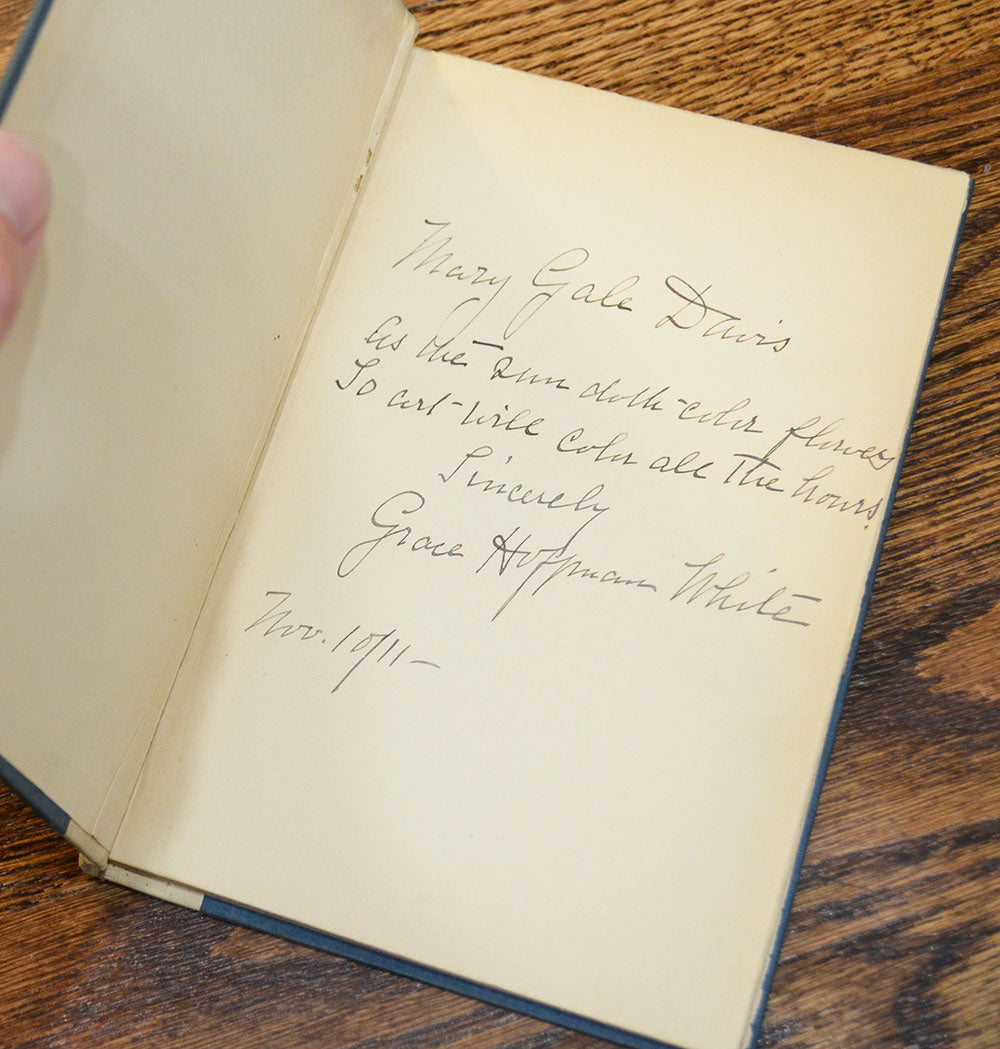 Mary Gale Davis
As the sun doth color flowers
So art will color all the hours.
Sincerely
Grace Hoffman White
Nov. 10/11—